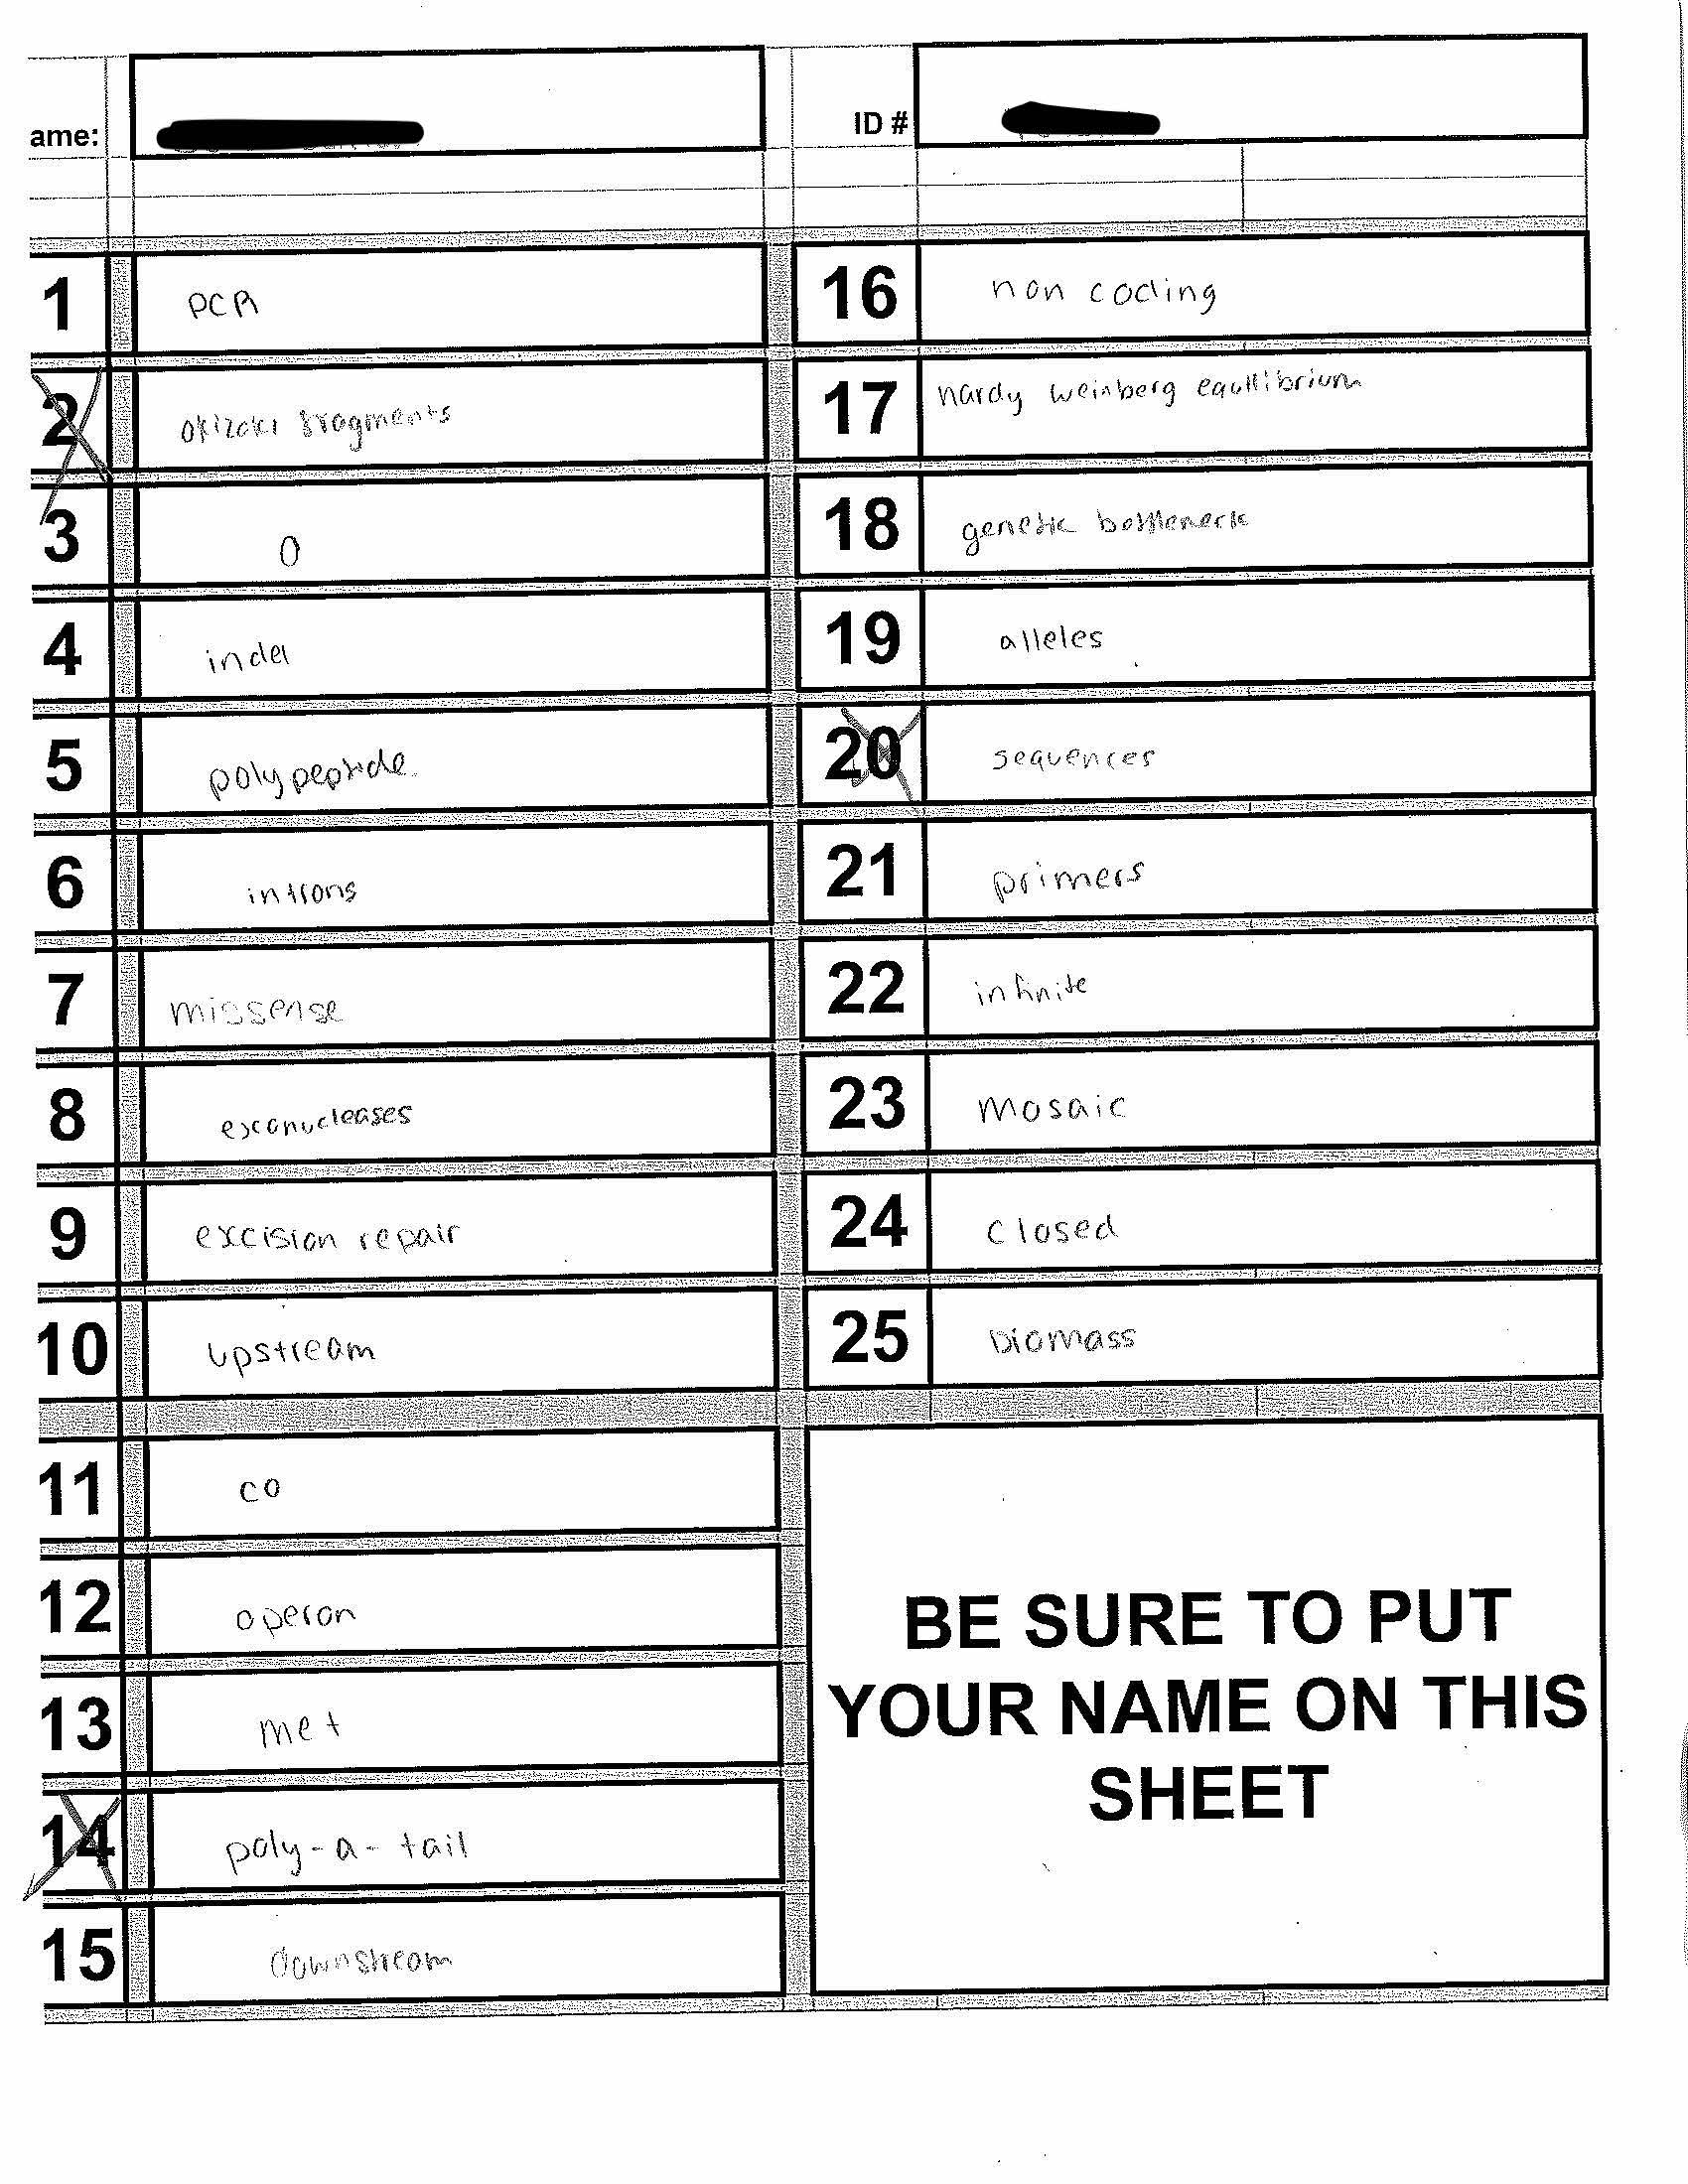 ame:
ID #
1 PCR
2 okizaki fragments
3 0
4 indel
5 polypeptide
6 introns
7 missense
8 exonucleases
9 excision repair
10 upstream
11 co
12 operon
13 met
14 poly-a-tail
15 downstream
16 non coding
17 hardy weinberg equilibrium
18 genetic bottleneck
19 alleles
20 sequences
21 primers
22 infinite
23 mosaic
24 closed
25 biomass
BE SURE TO PUT
YOUR NAME ON THIS
SHEET